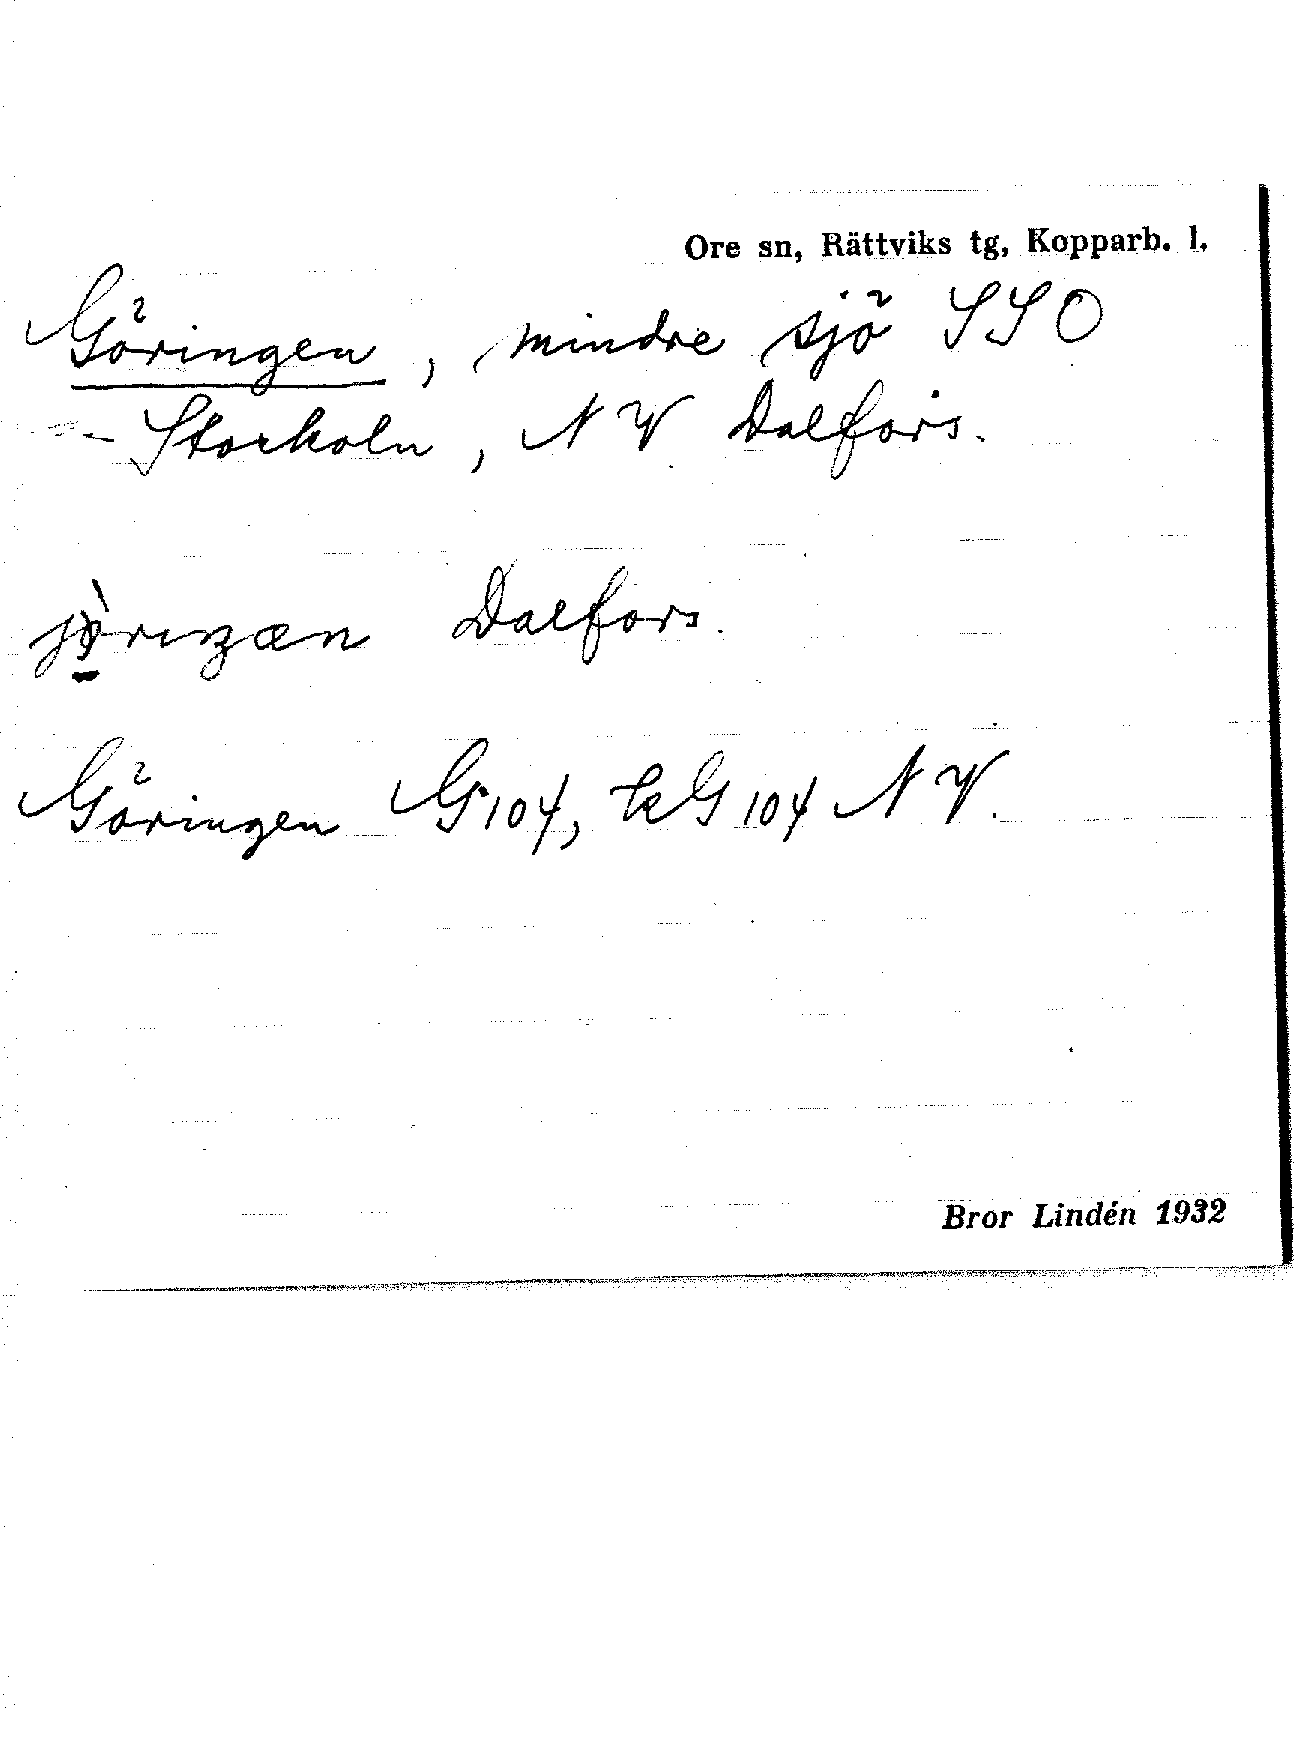 Ore sn, Rättviks tg, Kopparb. l.
Göringen, mindre sjö SSO
- Storkoln, NV Dalfors.
Dalfors.
Göringen G104, kG104 NV.
Bror Lindén 1932